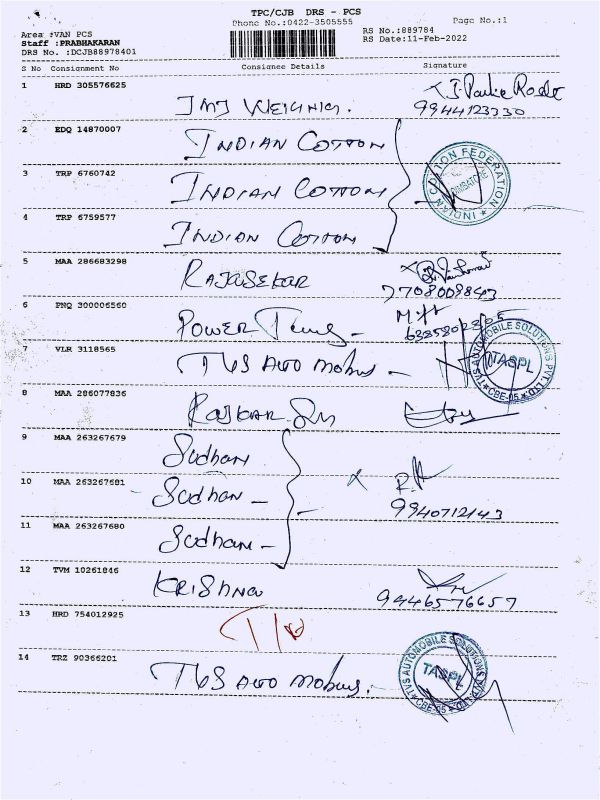 TPC/CJB DRS - PCS
Phone No.:0422-3505555
Page No.:1
Area :VAN PCS
Staff :PRABHAKARAN
DRS No. :DCJB88978401
RS No.:889784
RS Date:11-Feb-2022
S No Consignment No Consignee Details Signature
1 HRD 305576625
9944123330
2 EDQ 14870007 INDIAN COTTON
INDIAN COTTON FEDERATION
3 TRP 6760742 INDIAN COTTON
4 TRP 6759577 INDIAN COTTON
5 MAA 286683298 RAJASEKAR
7708009843
6 PNQ 300006560 POWER
7 VLR 3118565 TVS AUTO Mobus -
TVS AUTOMOBILE SOLUTIONS PVT. LTD.
TASPL
CBE-05
8 MAA 286077836
9 MAA 263267679 Sudhan
10 MAA 263267681 Sudhan -
9940712143
11 MAA 263267680 Sudhan -
12 TVM 10261846 KRISHNA
9446576657
13 HRD 754012925
14 TRZ 90366201 TVS AUTO Mobus.
TVS AUTOMOBILE SOLUTIONS PVT. LTD.
TASPL
CBE-05